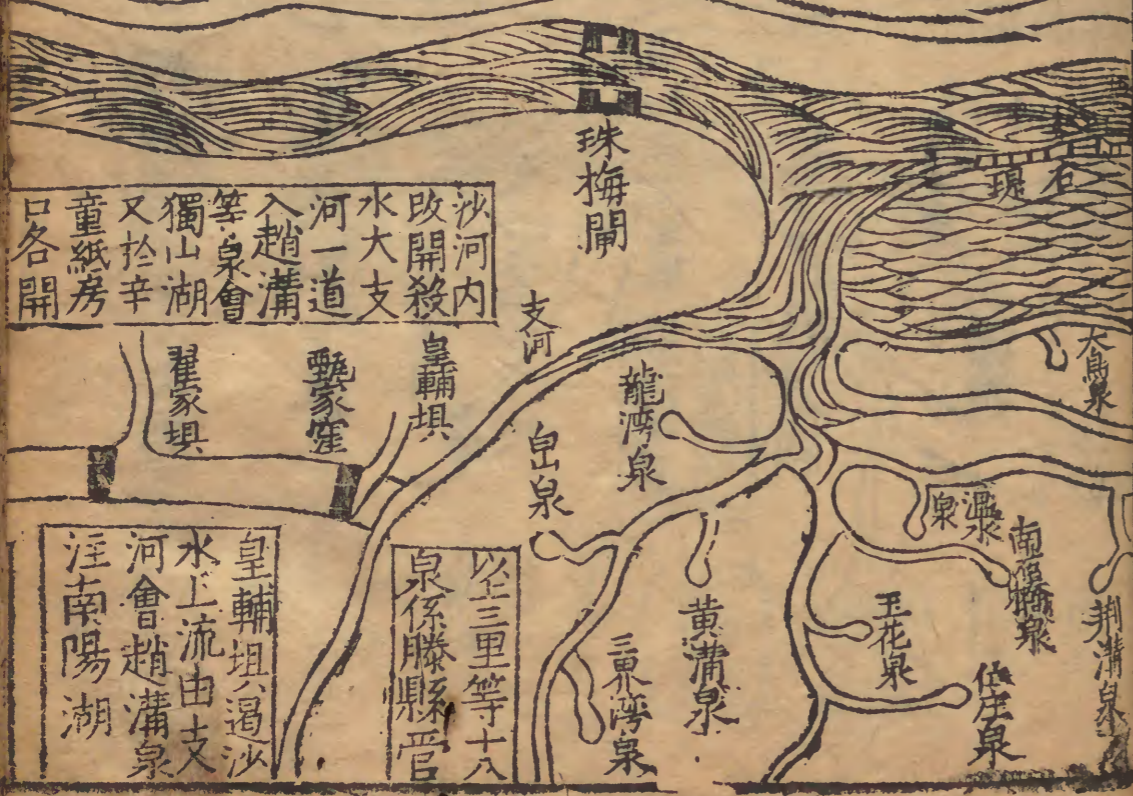 石
現
珠梅閘
沙河内
改開殺
水大支
河一道
入趙溝
等泉會
獨山湖
又於辛
童紙房
口各開
支河
皇輔垻
甄家窪
翟家垻
大烏泉
龍灣泉
白山泉
溫泉
南石橋泉
荆溝泉
玉花泉
黄溝泉
三界灣泉
以上三里等十八
泉係滕縣管
皇輔垻遏沙
水上流由支
河會趙溝泉
注南陽湖